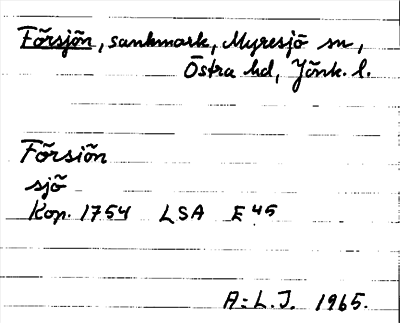 Försjön, sankmark, Myresjö sn,
Östra hd, Jönk. l.
Försiön
sjö
Kop. 1754 LSA E 45
A:L.J. 1965.